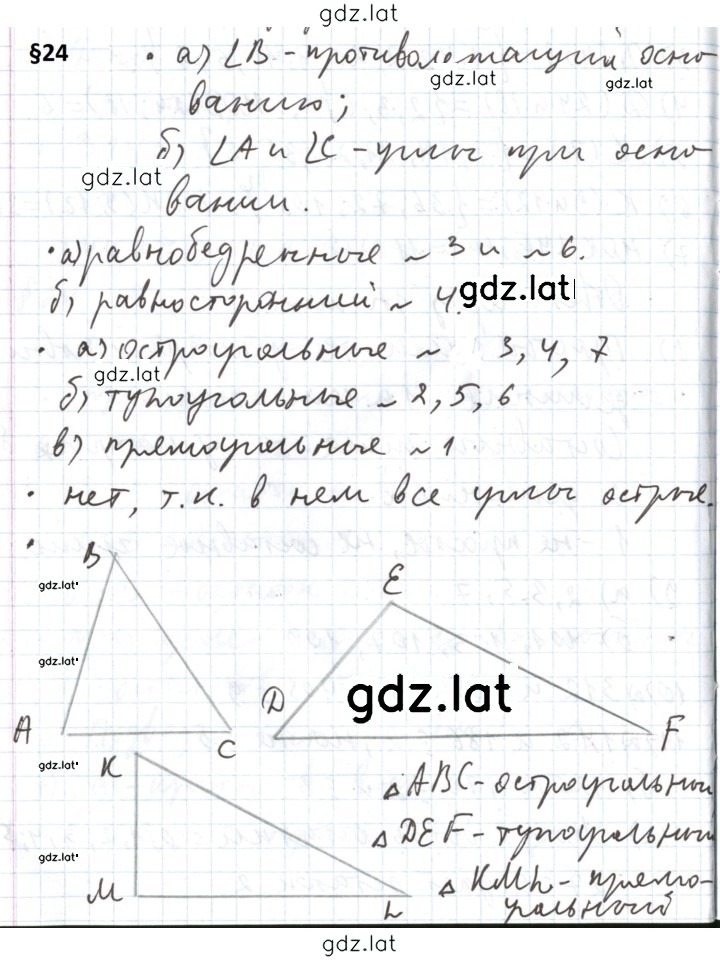 gdz.lat
§24
• а) ∠B - противолежащий осно-
gdz.lat gdz.lat
ванию;
б) ∠A и ∠C - углы при осно-
gdz.lat
вании.
• а) равнобедренные ~ 3 и ~ 6.
б) равносторонний ~ 4.
gdz.lat
• а) остроугольные ~ 3, 4, 7
gdz.lat
б) тупоугольные ~ 2, 5, 6
в) прямоугольные ~ 1
• нет, т.к. в нем все углы острые.
•
B
gdz.lat
E
gdz.lat
gdz.lat
D
A
C
F
gdz.lat
K
△ABC - остроугольный
△DEF - тупоугольный
gdz.lat
M
L
△KML - прямо-
угольный
gdz.lat